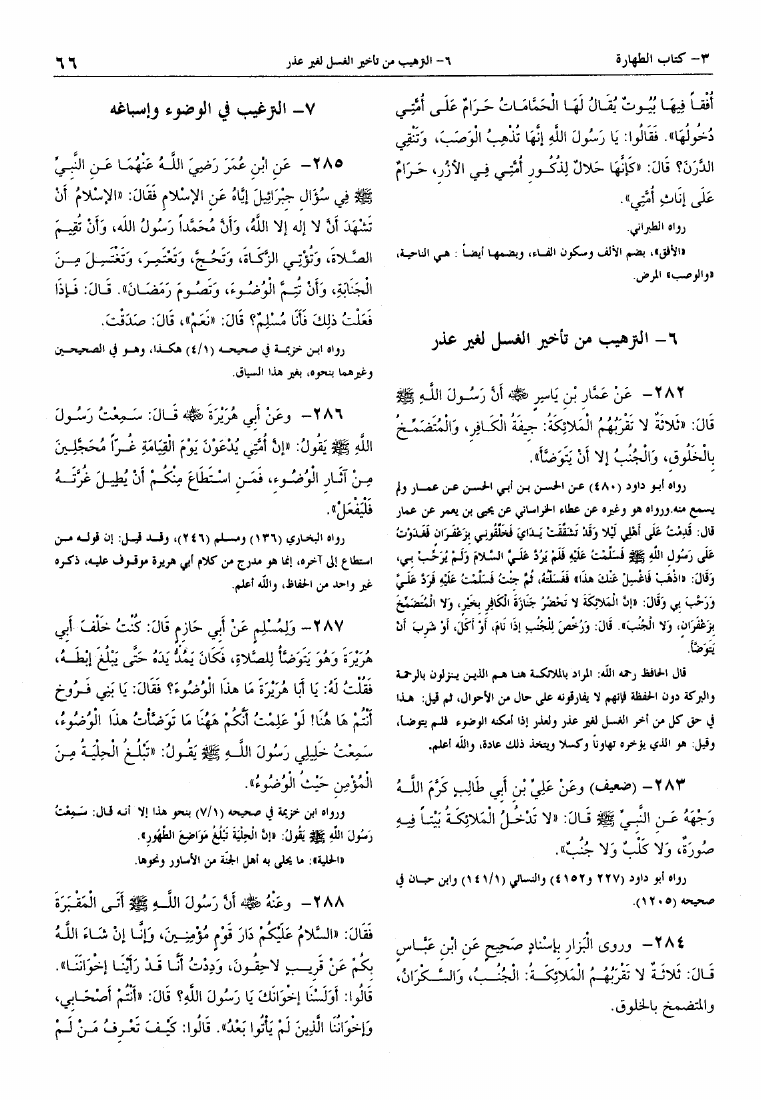 ٣- كتاب الطهارة
٦- الترهيب من تأخير الغسل لغير عذر
٦٦
أُفْقاً فِيهَا بُيُوتٌ يُقَالُ لَهَا الْحَمَّامَاتُ حَرَامٌ عَلَى أُمَّتِي
دُخُولُهَا». فَقَالُوا: يَا رَسُولَ اللهِ إِنَّهَا تُذْهِبُ الْوَصَبَ، وَتُنْقِي
الدَّرَنَ؟ قَالَ: «كَأَنَّهَا حَلَالٌ لِذُكُورِ أُمَّتِي فِي الأُزُرِ، حَرَامٌ
عَلَى إِنَاثِ أُمَّتِي».
رواه الطبراني.
«الأفق»، بضم الألف وسكون الفاء، وبضمها أيضاً : هي الناحية،
«والوصب» المرض.
٦- الترهيب من تأخير الغسل لغير عذر
٢٨٢- عَنْ عَمَّارِ بْنِ يَاسِرٍ ﷺ أَنَّ رَسُولَ اللهِ ﷺ
قَالَ: «ثَلَاثَةٌ لَا تَقْرَبُهُمُ الْمَلَائِكَةُ: جِيفَةُ الْكَافِرِ، وَالْمُتَضَمِّخُ
بِالْخَلُوقِ، وَالْجُنُبُ إِلا أَنْ يَتَوَضَّأَ».
رواه أبو داود (٤٨٠) عن الحسن بن أبي الحسن عن عمار ولم
يسمع منه. ورواه هو وغيره عن عطاء الخراساني عن يحيى بن يعمر عن عمار
قال: قَدِمْتُ عَلَى أَهْلِي لَيْلا وَقَدْ تَشَقَّقَتْ يَدَايَ فَخَلَّقُونِي بِزَعْفَرَانٍ فَغَدَوْتُ
عَلَى رَسُولِ اللهِ ﷺ فَسَلَّمْتُ عَلَيْهِ فَلَمْ يَرُدَّ عَلَيَّ السَّلَامَ وَلَمْ يُرَحِّبْ بِي،
وَقَالَ: «اذْهَبْ فَاغْسِلْ عَنْكَ هذَا» فَغَسَلْتُهُ، ثُمَّ جِئْتُ فَسَلَّمْتُ عَلَيْهِ فَرَدَّ عَلَيَّ
وَرَحَّبَ بِي وَقَالَ: «إِنَّ الْمَلَائِكَةَ لَا تَحْضُرُ جَنَازَةَ الْكَافِرِ بِخَيْرٍ، وَلَا الْمُتَضَمِّخَ
بِزَعْفَرَانٍ، وَلَا الْجُنُبَ». قَالَ: وَرُخِّصَ لِلْجُنُبِ إِذَا نَامَ، أَوْ أَكَلَ، أَوْ شَرِبَ أَنْ
يَتَوَضَّأَ.
قال الحافظ رحمه الله: المراد بالملائكة هنا هم الذين ينزلون بالرحمة
والبركة دون الحفظة فإنهم لا يفارقونه على حال من الأحوال، ثم قيل: هذا
في حق كل من أخر الغسل لغير عذر ولعذر إذا أمكنه الوضوء فلم يتوضأ،
وقيل: هو الذي يؤخره تهاوناً وكسلا ويتخذ ذلك عادة، والله أعلم.
٢٨٣- (ضعيف) وعَنْ عَلِيِّ بْنِ أَبِي طَالِبٍ كَرَّمَ اللهُ
وَجْهَهُ عَنِ النَّبِيِّ ﷺ قَالَ: «لا تَدْخُلُ الْمَلَائِكَةُ بَيْتاً فِيهِ
صُورَةٌ، وَلَا كَلْبٌ وَلَا جُنُبٌ».
رواه أبو داود (٢٢٧ و٤١٥٢) والنسائي (١٤١/١) وابن حبان في
صحيحه (١٢٠٥).
٢٨٤- وروى الْبَزارِ بإِسْنَادٍ صَحِيحٍ عَنِ ابْنِ عَبَّاسٍ
قَالَ: ثَلَاثَةٌ لَا تَقْرَبُهُمُ الْمَلَائِكَةُ: الْجُنُبُ، وَالسَّكْرَانُ،
والمتضمخ بالخلوق.
٧- الترغيب في الوضوء وإسباغه
٢٨٥- عَنِ ابْنِ عُمَرَ رَضِيَ اللهُ عَنْهُمَا عَنِ النَّبِيِّ
ﷺ فِي سُؤَالِ جِبْرَائِيلَ إِيَّاهُ عَنِ الإِسْلَامِ فَقَالَ: «الإِسْلَامُ أَنْ
تَشْهَدَ أَنْ لا إله إلا اللهُ، وَأَنَّ مُحَمَّداً رَسُولُ الله، وَأَنْ تُقِيمَ
الصَّلاةَ، وَتُؤْتِيَ الزَّكَاةَ، وَتَحُجَّ، وَتَعْتَمِرَ، وَتَغْتَسِلَ مِنَ
الْجَنَابَةِ، وَأَنْ تُتِمَّ الْوُضُوءَ، وَتَصُومَ رَمَضَانَ». قَالَ: فَإِذَا
فَعَلْتُ ذلِكَ فَأَنَا مُسْلِمٌ؟ قَالَ: «نَعَمْ»، قَالَ: صَدَقْتَ.
رواه ابن خزيمة في صحيحه (٤/١) هكذا، وهو في الصحيحين
وغيرهما بنحوه، بغير هذا السياق.
٢٨٦- وعَنْ أَبِي هُرَيْرَةَ ﷺ قَالَ: سَمِعْتُ رَسُولَ
اللهِ ﷺ يَقُولُ: «إِنَّ أُمَّتِي يُدْعَوْنَ يَوْمَ الْقِيَامَةِ غُرّاً مُحَجَّلِينَ
مِنْ آثَارِ الْوُضُوءِ، فَمَنِ اسْتَطَاعَ مِنْكُمْ أَنْ يُطِيلَ غُرَّتَهُ
فَلْيَفْعَلْ».
رواه البخاري (١٣٦) ومسلم (٢٤٦)، وقد قيل: إن قوله من
استطاع إلى آخره، إنما هو مدرج من كلام أبي هريرة موقوف عليه، ذكره
غير واحد من الحفاظ، والله أعلم.
٢٨٧- وَلِمُسْلِمٍ عَنْ أَبِي حَازِمٍ قَالَ: كُنْتُ خَلْفَ أَبِي
هُرَيْرَةَ وَهُوَ يَتَوَضَّأُ لِلصَّلَاةِ، فَكَانَ يَمُدُّ يَدَهُ حَتَّى يَبْلُغَ إِبْطَهُ،
فَقُلْتُ لَهُ: يَا أَبَا هُرَيْرَةَ مَا هذَا الْوُضُوءُ؟ فَقَالَ: يَا بَنِي فَرُّوخَ
أَنْتُمْ هَا هُنَا! لَوْ عَلِمْتُ أَنَّكُمْ هَهُنَا مَا تَوَضَّأْتُ هذَا الْوُضُوءَ،
سَمِعْتُ خَلِيلِي رَسُولَ اللهِ ﷺ يَقُولُ: «تَبْلُغُ الْحِلْيَةُ مِنَ
الْمُؤْمِنِ حَيْثُ الْوُضُوءُ».
ورواه ابن خزيمة في صحيحه (٧/١) بنحو هذا إلا أنه قال: سَمِعْتُ
رَسُولَ اللهِ ﷺ يَقُولُ: «إِنَّ الْحِلْيَةَ تَبْلُغُ مَوَاضِعَ الطُّهُورِ».
«الحلية»: ما يحلى به أهل الجنة من الأساور ونحوها.
٢٨٨- وعَنْهُ ﷺ أَنَّ رَسُولَ اللهِ ﷺ أَتَى الْمَقْبَرَةَ
فَقَالَ: «السَّلَامُ عَلَيْكُمْ دَارَ قَوْمٍ مُؤْمِنِينَ، وَإِنَّا إِنْ شَاءَ اللهُ
بِكُمْ عَنْ قَرِيبٍ لاحِقُونَ، وَدِدْتُ أَنَّا قَدْ رَأَيْنَا إِخْوَانَنَا».
قَالُوا: أَوَلَسْنَا إِخْوَانَكَ يَا رَسُولَ اللهِ؟ قَالَ: «أَنْتُمْ أَصْحَابِي،
وَإِخْوَانُنَا الَّذِينَ لَمْ يَأْتُوا بَعْدُ». قَالُوا: كَيْفَ تَعْرِفُ مَنْ لَمْ